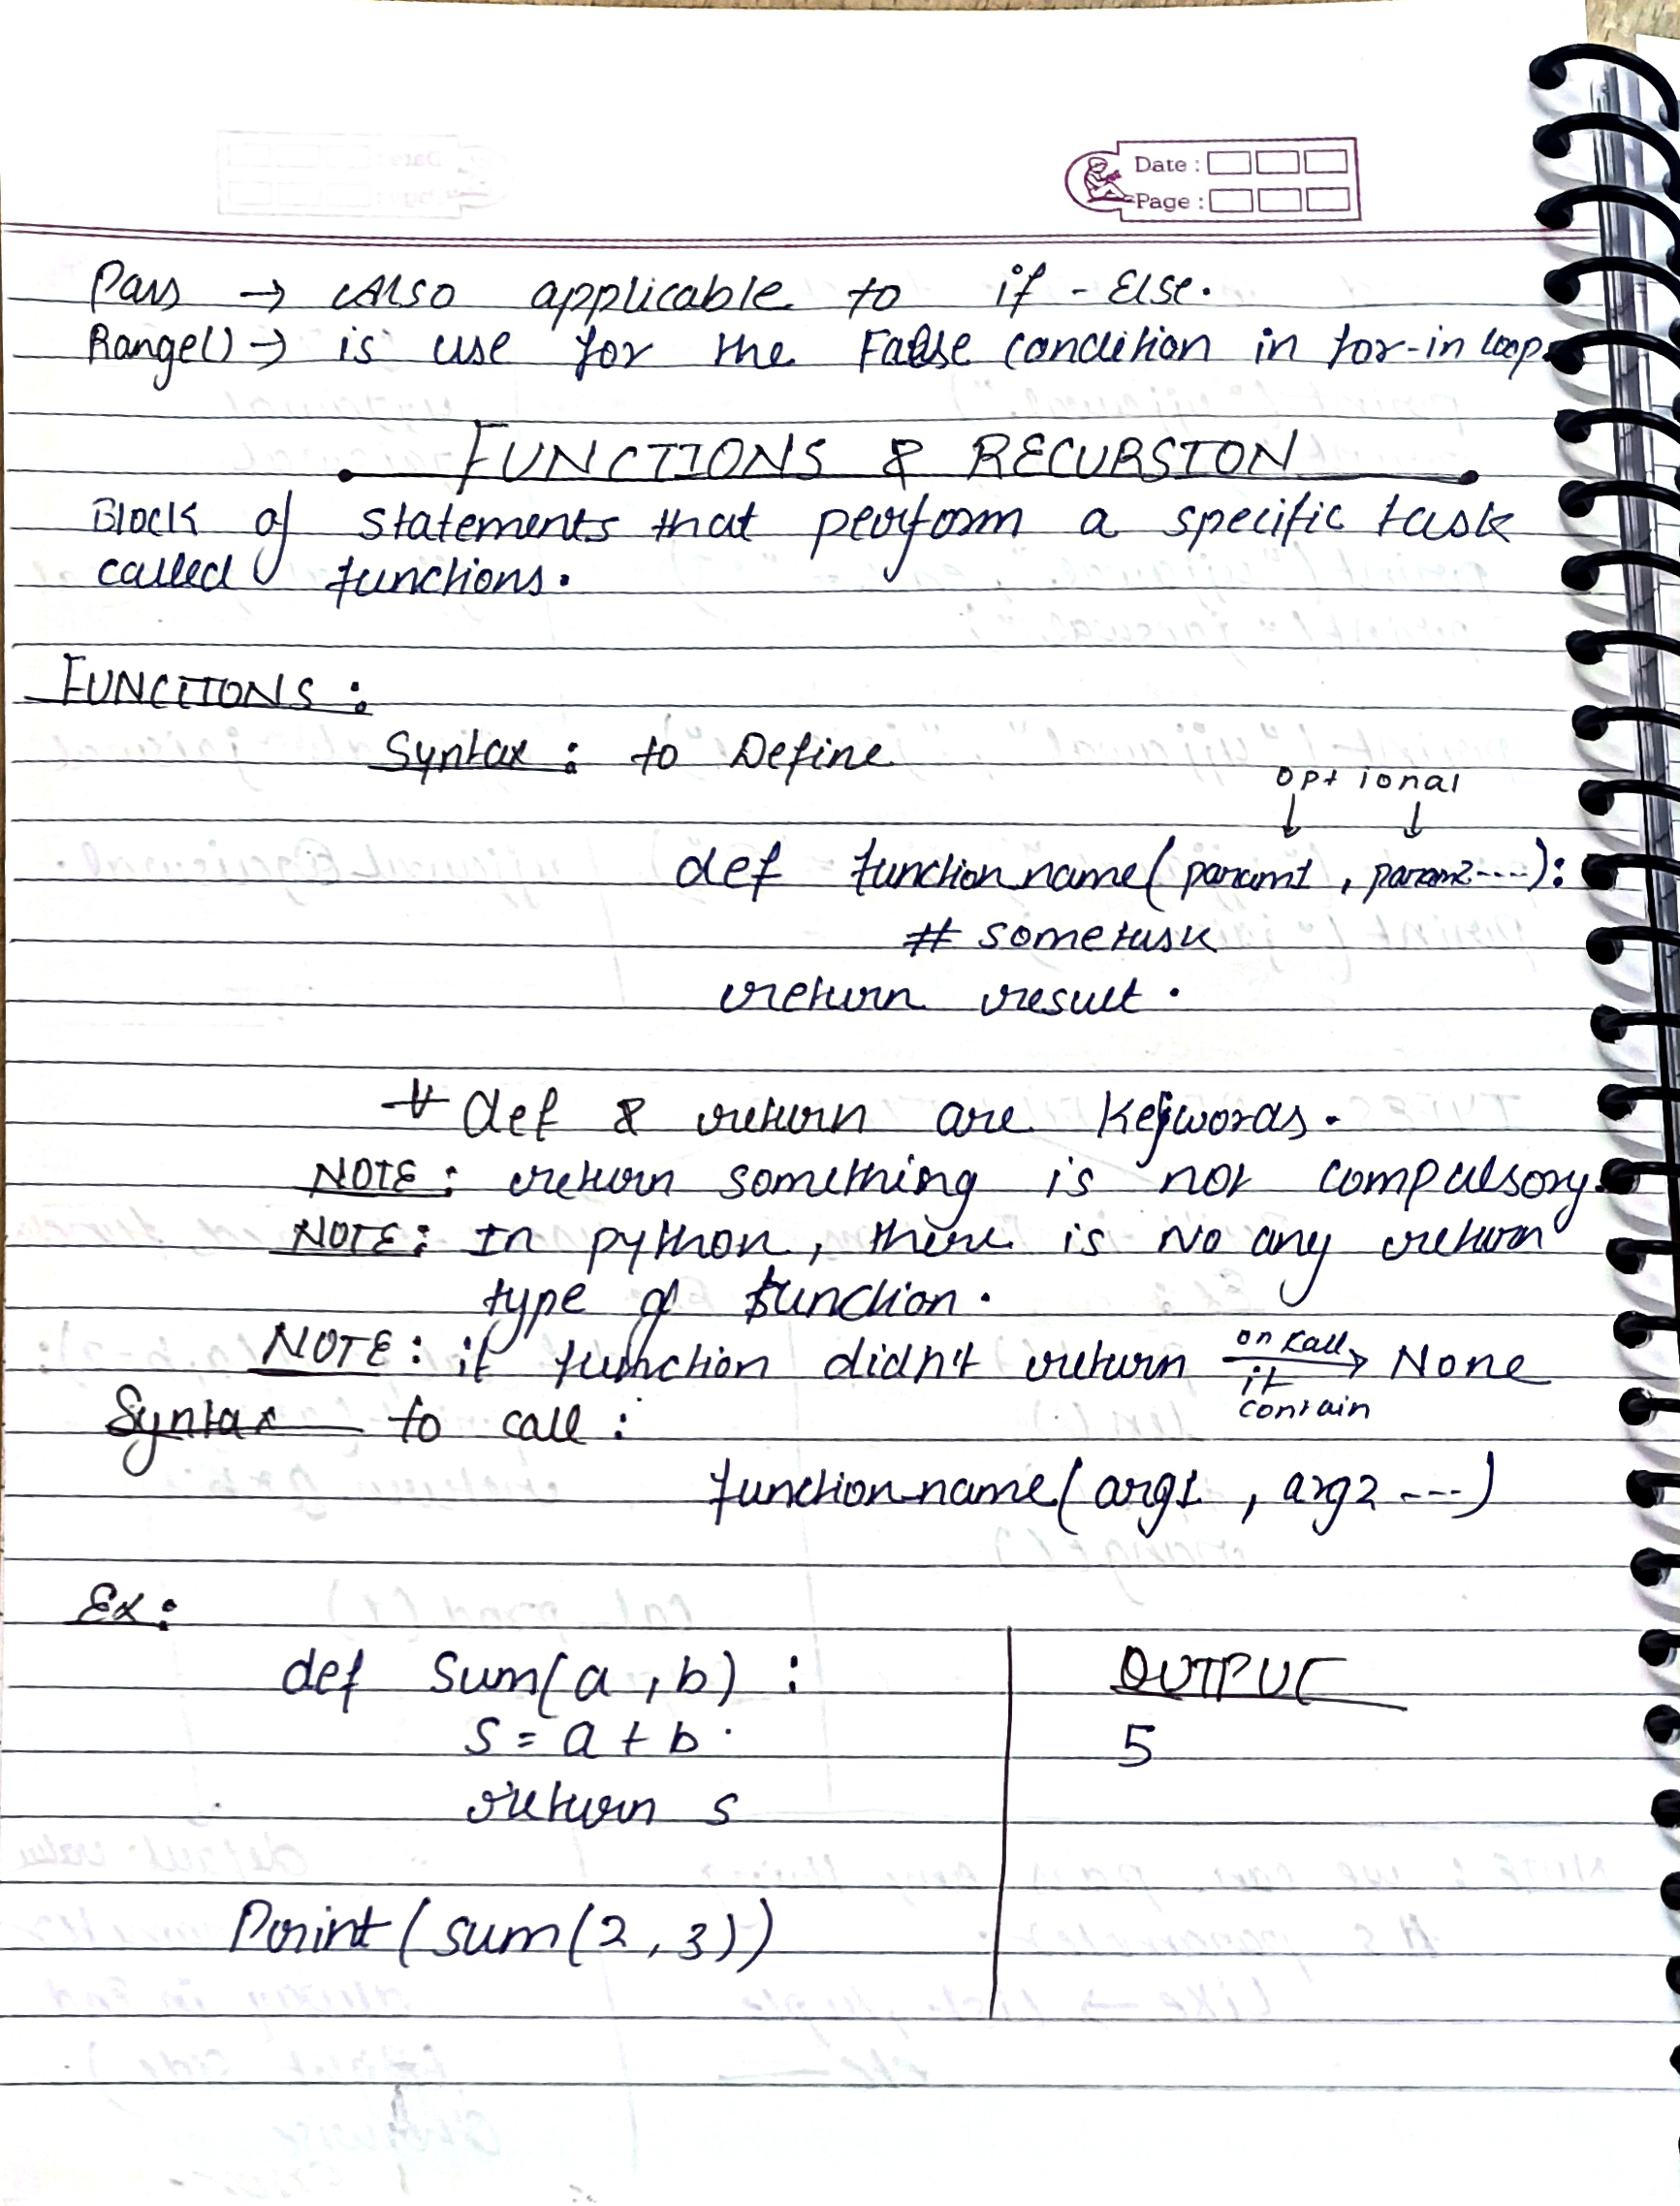 Date :
Page :
Pass → Also applicable to if - Else.
Range() → is use for the False condition in for-in loop.
FUNCTIONS & RECURSION
Block of statements that perform a specific task
called functions.
FUNCTIONS :
Syntax : to Define
optional
def function_name( param1 , param2 ---- ):
# some task
return result .
# def & return are Keywords.
NOTE : return something is not compulsory.
NOTE : In python, there is No any return
type of function.
NOTE : if function didn't return on call, it contain → None
Syntax to call :
function_name( arg1 , arg2 --- )
Ex :
def sum( a , b ) :
s = a + b
return s
Print ( sum(2, 3))
OUTPUT
5